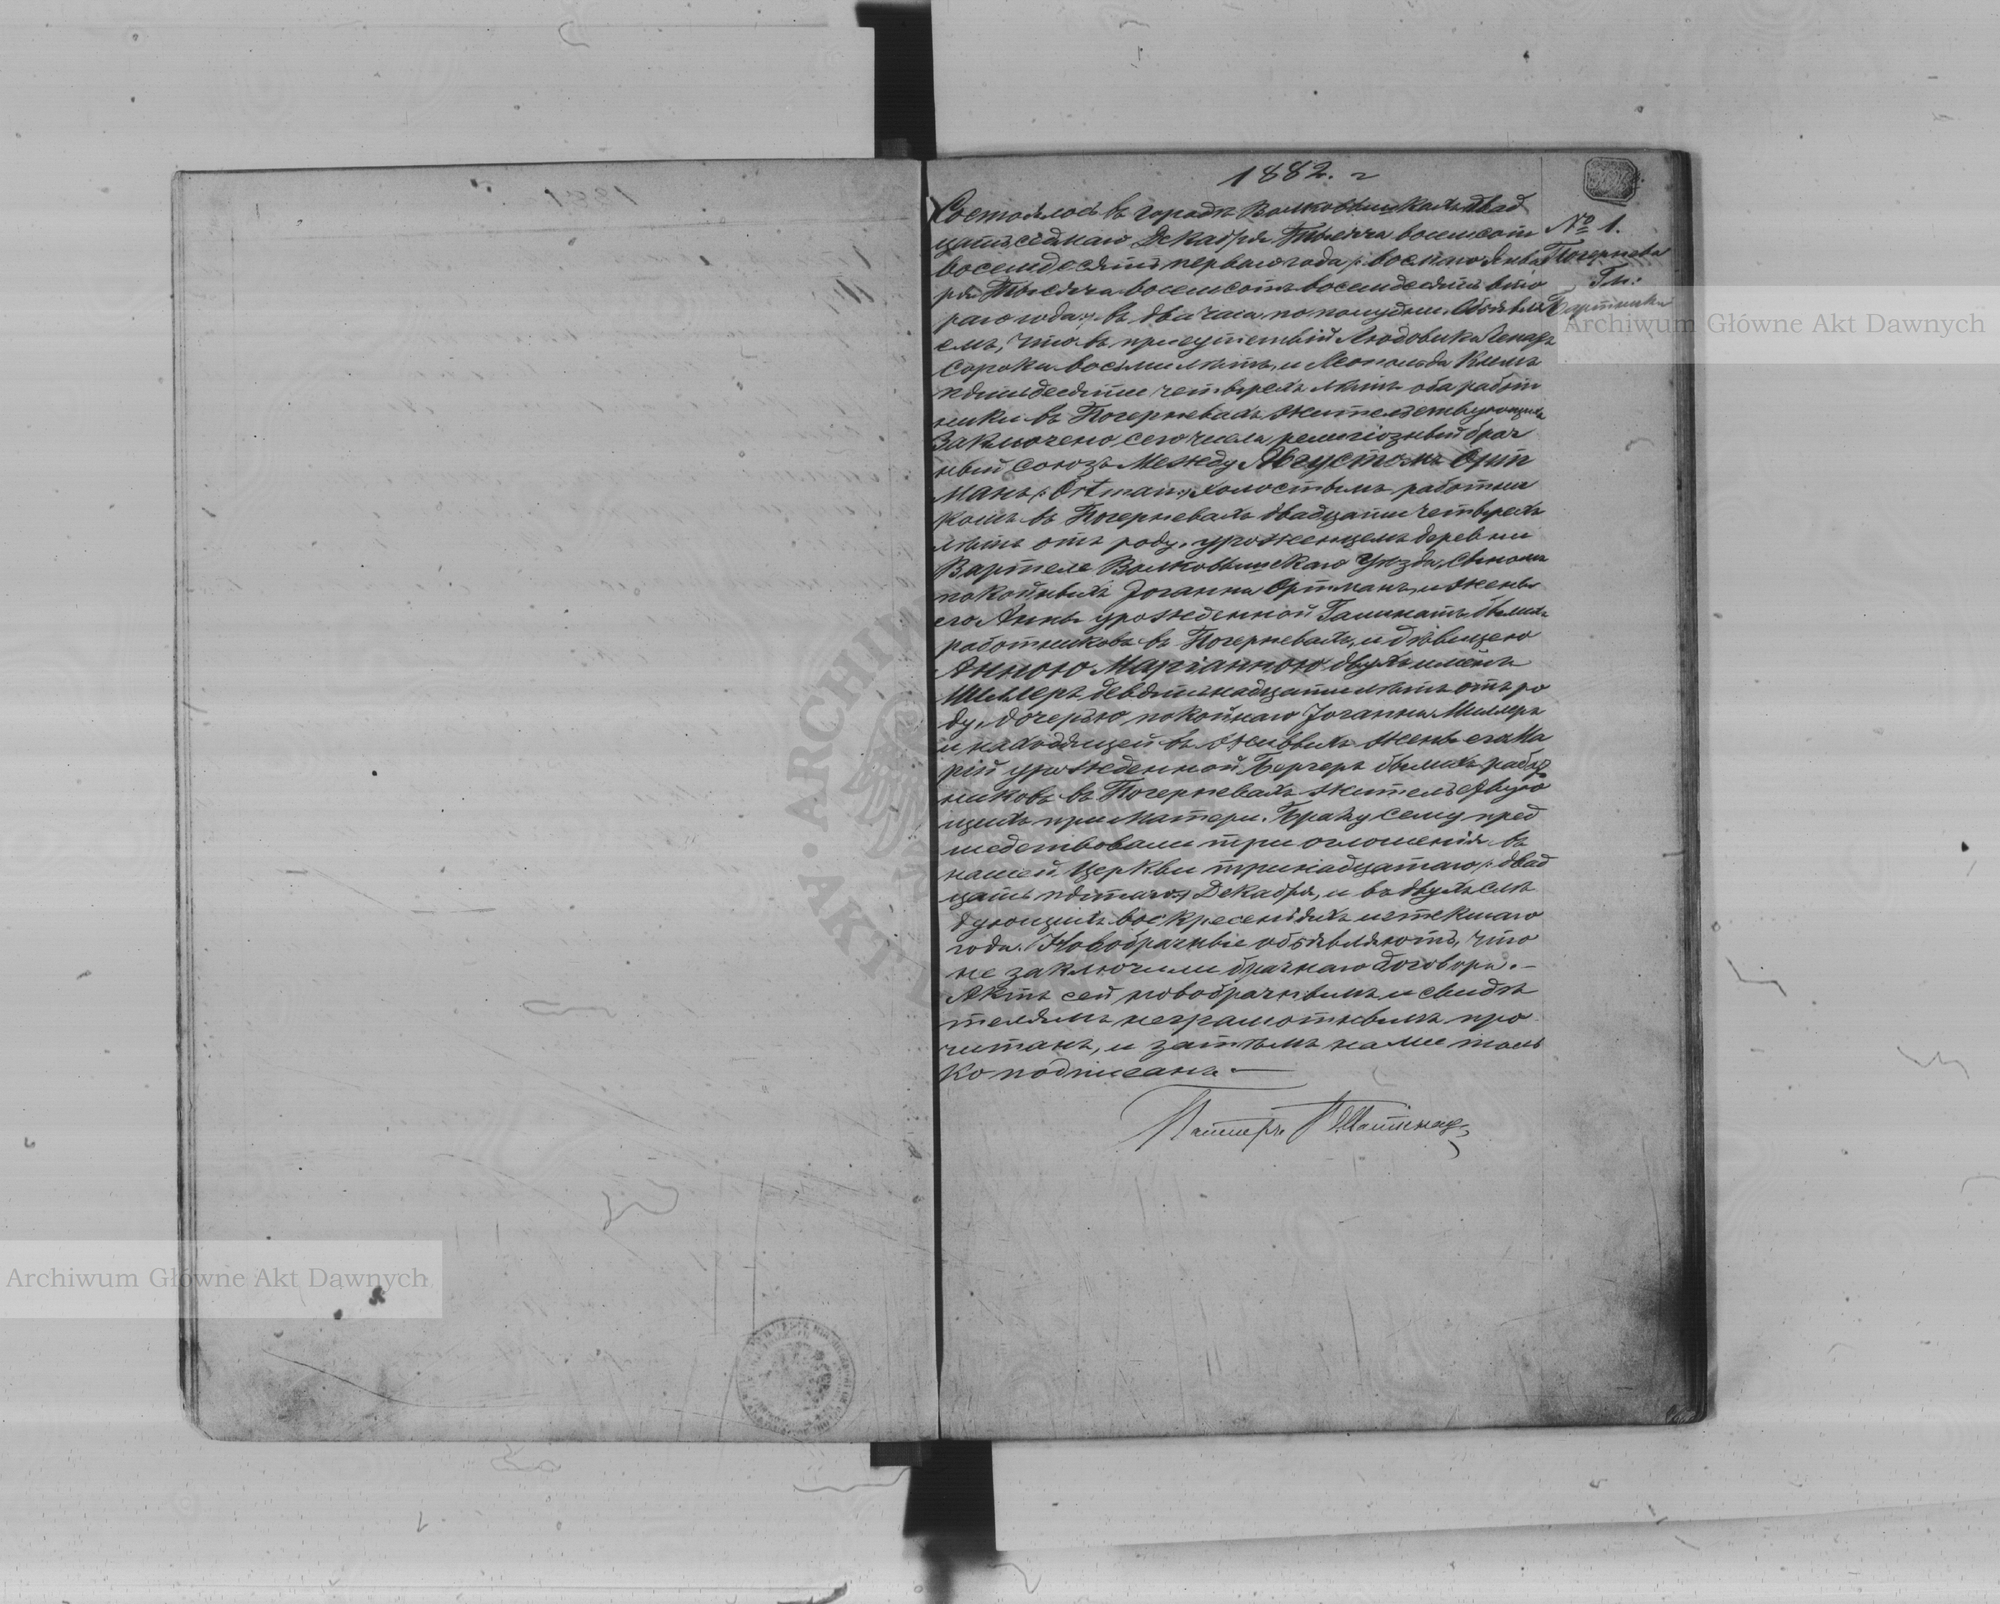 1882. г
№ 1.
Погернева
Гм:
Бартники
Состоялось в городѣ Волковышкахъ двад
цать седмаго Декабря Тысяча восемсот
восемдесятъ перваго года /: восмаго Янва
ря Тысяча восемсотъ восемдесятъ вто
раго года :/ въ два часа по полудни. Объявля
емъ, что въ присутствіи Людовика Ленард
сорока восьми лѣтъ, и Леопольда Климъ
пятидесяти четырехъ лѣтъ оба работ
ники въ Погерневахъ жительствующихъ
Заключено сего числа религіозный брач
ный союзъ между Августомъ Орт
манъ /: Ortman :/ холостымъ работни
комъ въ Погерневахъ двадцати четырехъ
лѣтъ отъ роду, уроженцемъ деревни
Вартеле Волковышскаго Уѣзда, сыномъ
покойныхъ Іоганна Ортманъ, и жены
его Анны урожденной Галинатъ бывшихъ
работниковъ въ Погерневахъ, и дѣвицею
Анною Маріанною двухъ имёнъ
Миллеръ девятьнадцати лѣтъ отъ ро
ду, дочерью покойнаго Іоганна Миллеръ
и находящей въ живыхъ жены его Ма
ріи урожденной Бергеръ бывшихъ работ
никовъ въ Погерневахъ жительствую
щихъ при матери. Браку сему пред
шествовали три оглошенія въ
нашей Церкви тринадцатаго /: двад
цать пятаго :/ Декабря, и въ двухъ слѣ
дующихъ воскресеніяхъ истекшаго
года. Новобрачные объявляютъ, что
не заключили брачнаго договора. —
Актъ сей новобрачнымъ и свидѣ
телямъ неграмотнымъ про
читанъ, и затѣмъ нами толь
ко подписанъ. —
Пасторъ
Archiwum Główne Akt Dawnych
Archiwum Główne Akt Dawnych